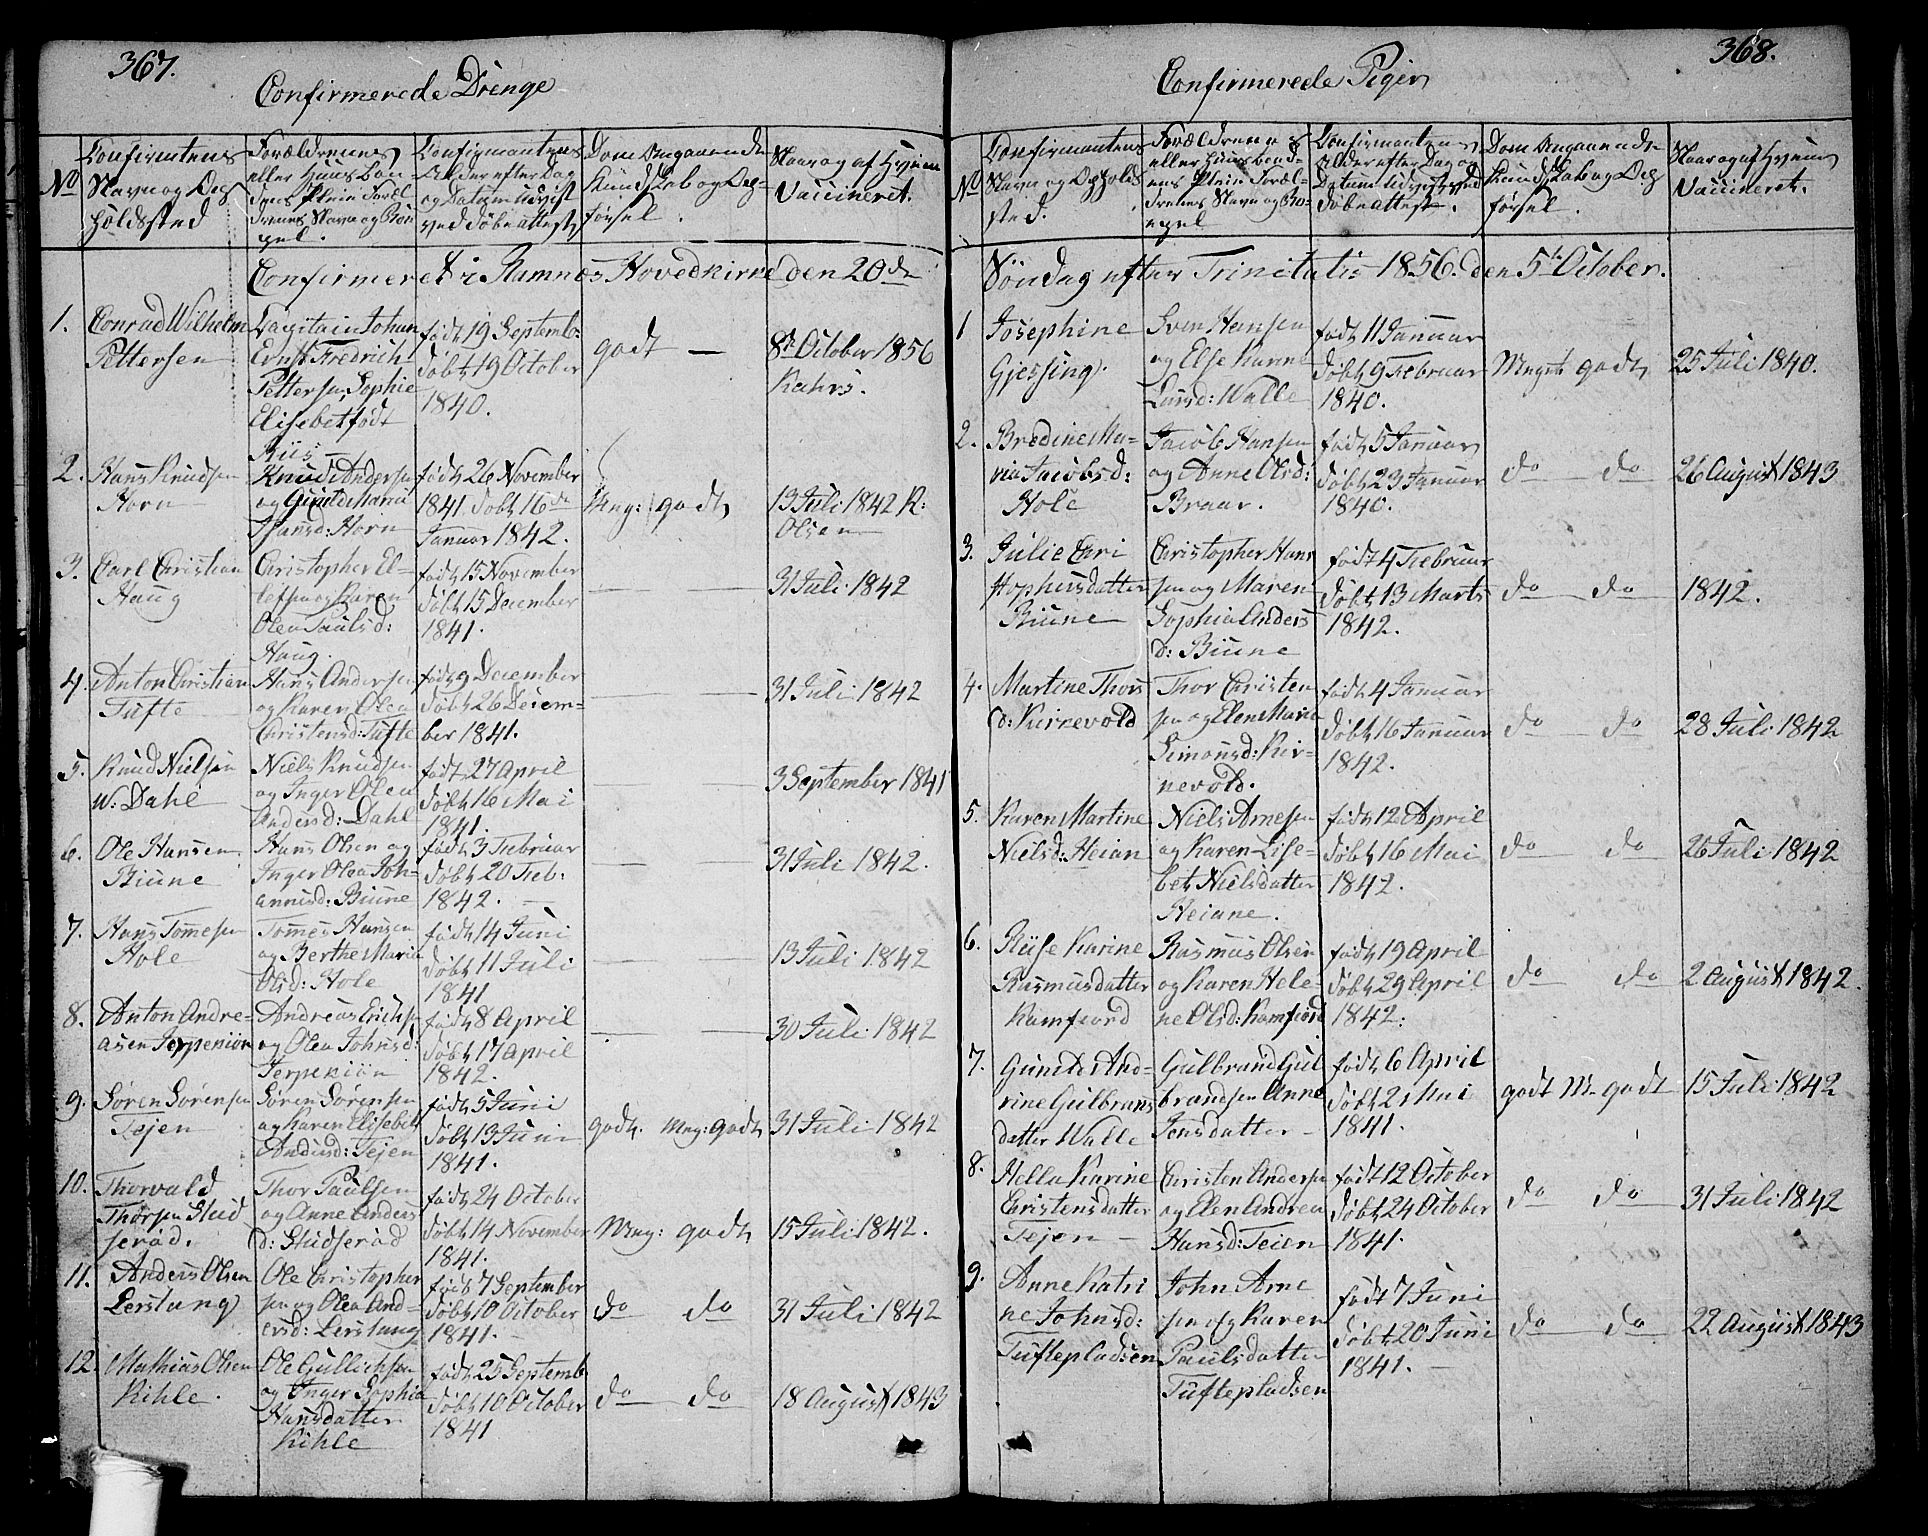 367.
Confirmerede Drenge
No
Confirmtens
Navn og Op
holdssted
Forældrenes
eller Huus bon
dens Pleie Foræl
drenes Navn og Bo
pel.
Confirmantens
Alder efter Dag
og Datum udvist
ved Døbeattest
Dom Angaaende
Kundskab og Op-
førsel.
Naar og af Hvem
Vaccineret.
Confirmeret i Ramnæs Hovedkirke den 20de
1.
Conrad Wilhelm
Pettersen
Capitain Johan
Ernst Fredrich
Pettersen, Sophie
Elisebet født
Riis
født 19 Septemb:
døbt 19 October
1840.
godt —
8de October 1856
Rahrs.
2.
Hans Knudsen
Horn
Knud Andersen
og Gunte Maria
Hansd: Horn
født 26 November
1841 døbt 16de
Januar 1842.
Mng: godt
13 Juli 1842 R:
Olsen
3.
Carl Christian
Haug
Christopher El-
lefsen og Karen
Olea Paulsd:
Haug.
født 15 November
døbt 15 December
1841.
— —
31 Juli 1842
4.
Anton Christian
Tufte
Hans Andersen
og Karen Olea
Christensd: Tufte
født 9 December
døbt 26 Decem-
ber 1841.
— —
31 Juli 1842
5.
Knud Nielsen
W: Dahl
Niels Knudsen
og Inger Olea
Andersd: Dahl
født 27 April
døbt 16 Mai
1841.
— —
3 September 1841
6.
Ole Hansen
Biune
Hans Olsen og
Inger Olea Joh-
annisd: Biune
født 3 Februar
døbt 20 Feb:
1842.
— —
31 Juli 1842.
7.
Hans Tomesen
Hole
Tomes Hansen
og Berthe Maria
Olsd: Hole
født 14 Juni
døbt 11 Juli
1841
— —
13 Juli 1842
8.
Anton Andre-
asen Jerpekiön
Andreas Erichsen
og Olea Johnsd:
Jerpekiön
født 8 April
døbt 17 April
1842.
— —
30 Juli 1842
9.
Søren Sørensen
Tejen
Søren Sørensen
og Karen Elisebet
Andersd: Tejen
født 5 Juni
døbt 13 Juni
1841.
godt. Mng: godt
31 Juli 1842
10.
Thorvald
Thorsen Stud
serød.
Thor Paulsen
og Anne Anders
d: Studserød
født 24 October
døbt 14 November
1841.
Mng: godt
15 Juli 1842.
11.
Anders Olsen
Lerstang
Ole Christopher
sen og Olea And-
ersd: Lerstang
født 7 September
døbt 10 October
1841.
do do
31 Juli 1842
12.
Mathias Olsen
Kihle.
Ole Gullichsen
og Inger Sophia
Hansdatter
Kihle
født 25 Septemb
døbt 10 October
1841
do do
18 August 1843
368.
Confirmerede Piger
No
Confirmantens
Navn og Opholds
sted.
Forældrenes
eller Huusbond-
ens Pleie Foræl-
drenes Navn og Bo-
pel
Confirmantens
Alder efter Dag og
Datum udvist ved
Døbeattest.
Dom Angaaende
Kundskab og Op
førsel.
Naar og af Hvem
Vaccineret.
Søndag efter Trinitatis 1856. den 5te October.
1
Josephine
Gjessing.
Sven Hansen
og Else Karine
Larsd: Walle
født 11 Januar
døbt 9 Februar
1840.
Meget godt
25 Juli 1840.
2.
Bredine Ma-
ria Jacobsd:
Hole
Jacob Hansen
og Anne Olsd:
Braar.
født 5 Januar
døbt 23 Januar
1840.
do do
26 August 1843
3.
Julie Chri
stophersdatter
Biune
Christopher Hans
sen og Maren
Sophia Anders
d: Biune
født 4 Februar
døbt 13 Marts
1842.
do do
1842.
4.
Martine Thors
d: Kirkevold
Thor Christen
sen og Elen Maria
Simonsd: Kir-
kevold.
født 4 Januar
døbt 16 Januar
1842.
do do
28 Juli 1842
5.
Karen Martine
Nielsd: Heian
Niels Arnesen
og Karen Lise-
bet Nielsdatter
Heiane.
født 12 April
døbt 16 Mai
1842.
do do
26 Juli 1842
6.
Rise Karine
Rasmusdatter
Kamfiord
Rasmus Olsen
og Karen Hele-
ne Olsd: Kamfiord
født 19 April
døbt 29 April
1842:
do do
2 August 1842.
7.
Gunild And-
rine Gulbrans
datter Walle
Gulbrand Gul
brandsen Anne
Jensdatter
født 6 April
døbt 2 Mai
1841.
godt M. godt
15 Juli 1842
8.
Hella Karine
Christensdatter
Tejen
Christen Andersen
og Elen Andrea
Hansd: Teien
født 12 October
døbt 24 October
1841.
do do
31 Juli 1842
9.
Anne Katri
ne Johnsd:
Tuftepladsen
John Arne
sen og Karen
Paulsdatter
Tuftepladsen
født 7 Juni
døbt 20 Juni
1841.
do do
22 August 1843